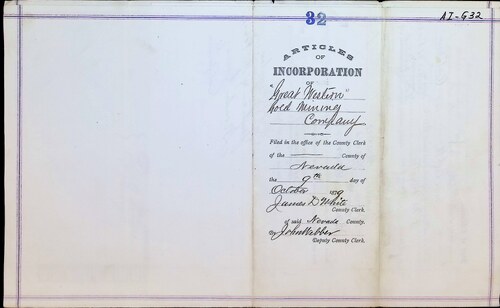 32
AI-G32
ARTICLES
OF
INCORPORATION
OF
"Great Western"
Gold Mining
Company
Filed in the office of the County Clerk
of the ——— County of
Nevada
the 9th day of
October 1879
James D White
County Clerk.
of said Nevada County.
By John Webber
Deputy County Clerk.